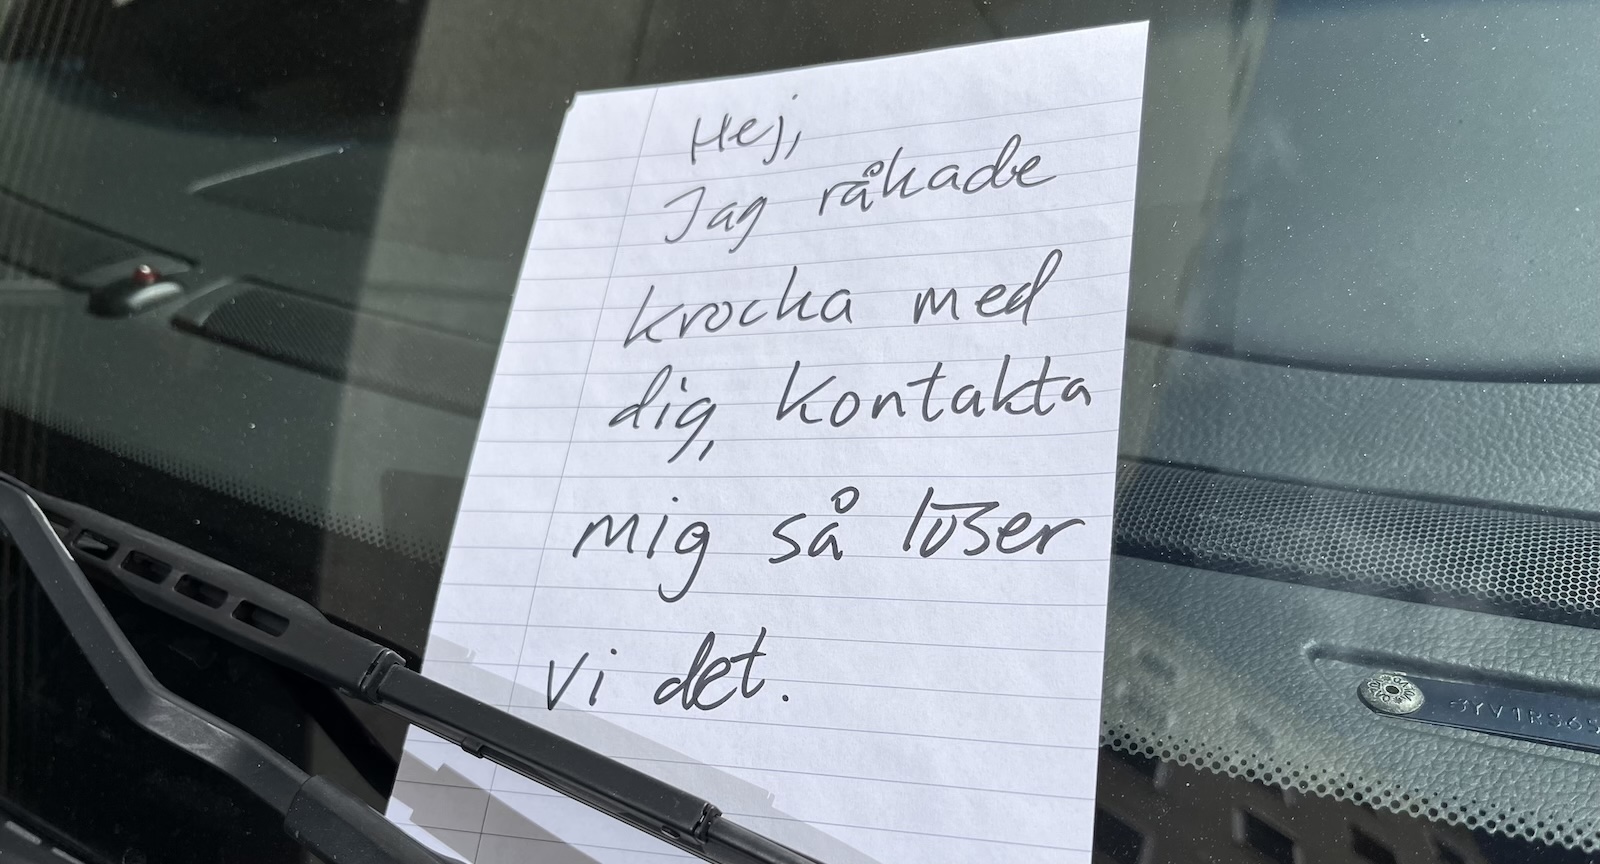 Hej,
Jag råkade
krocka med
dig, kontakta
mig så löser
vi det.